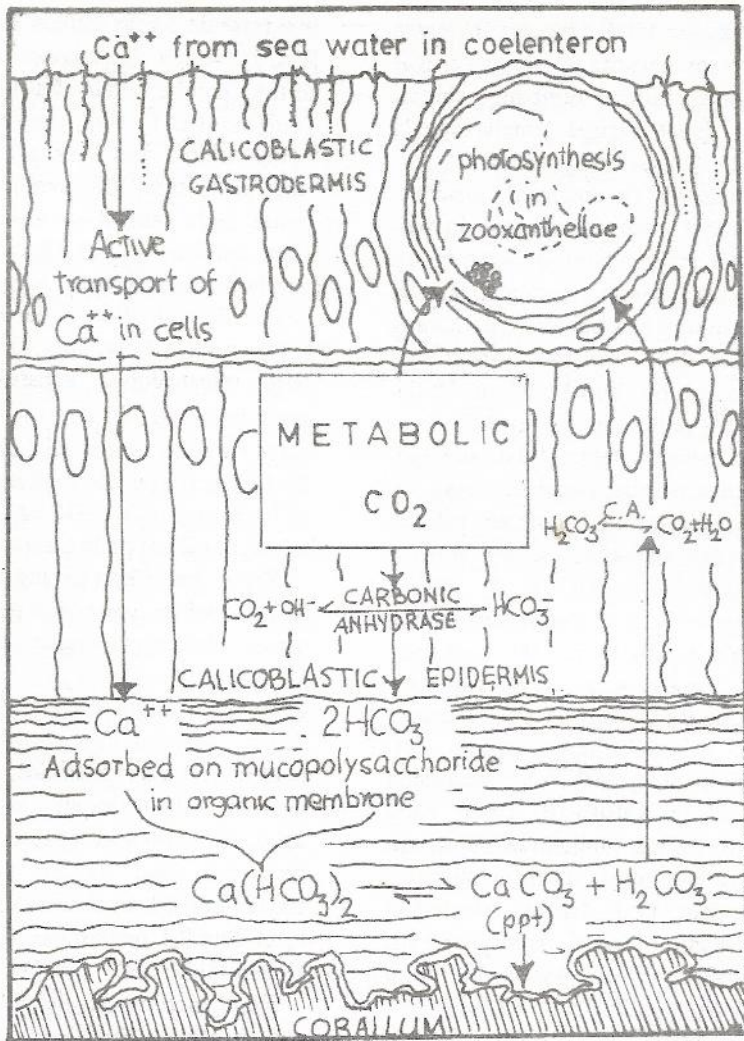 Ca++ from sea water in coelenteron
CALICOBLASTIC
GASTRODERMIS
photosynthesis
in
zooxanthellae
Active
transport of
Ca++ in cells
METABOLIC
CO2
H2CO3 C.A. CO2+H2O
CO2+OH- CARBONIC HCO3-
ANHYDRASE
CALICOBLASTIC EPIDERMIS
Ca++ 2HCO3
Adsorbed on mucopolysaccharide
in organic membrane
Ca(HCO3)2 ⇌ CaCO3 + H2CO3
(ppt)
CORALLUM